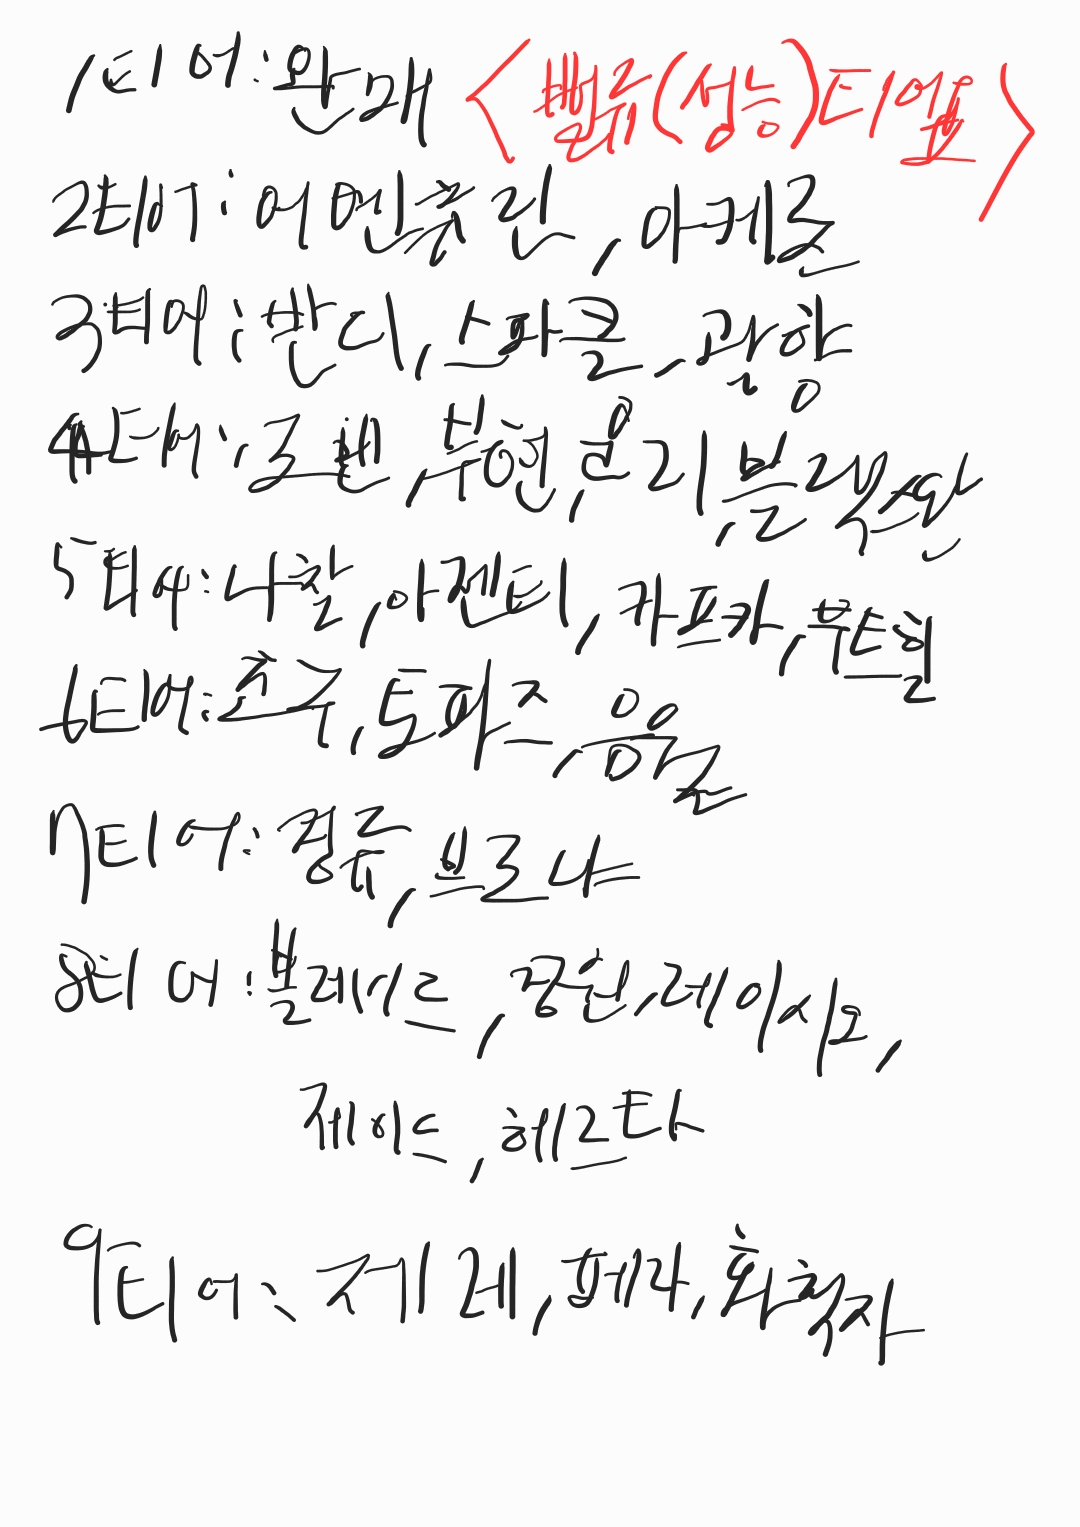 1티어:완매 <밸류(성능)티어표>
2티어:어먼류린,아케론
3티어:반디,스파클,광항
4티어:로빈,부현,운리,블랙스완
5티어:나찰,아젠티,카프카,부트힐
6티어:초구,토파즈,음월
7티어:경류,브로냐
8티어:블레이드,경원,레이시오,
제이드,헤르타
9티어:제레,페라,화척자